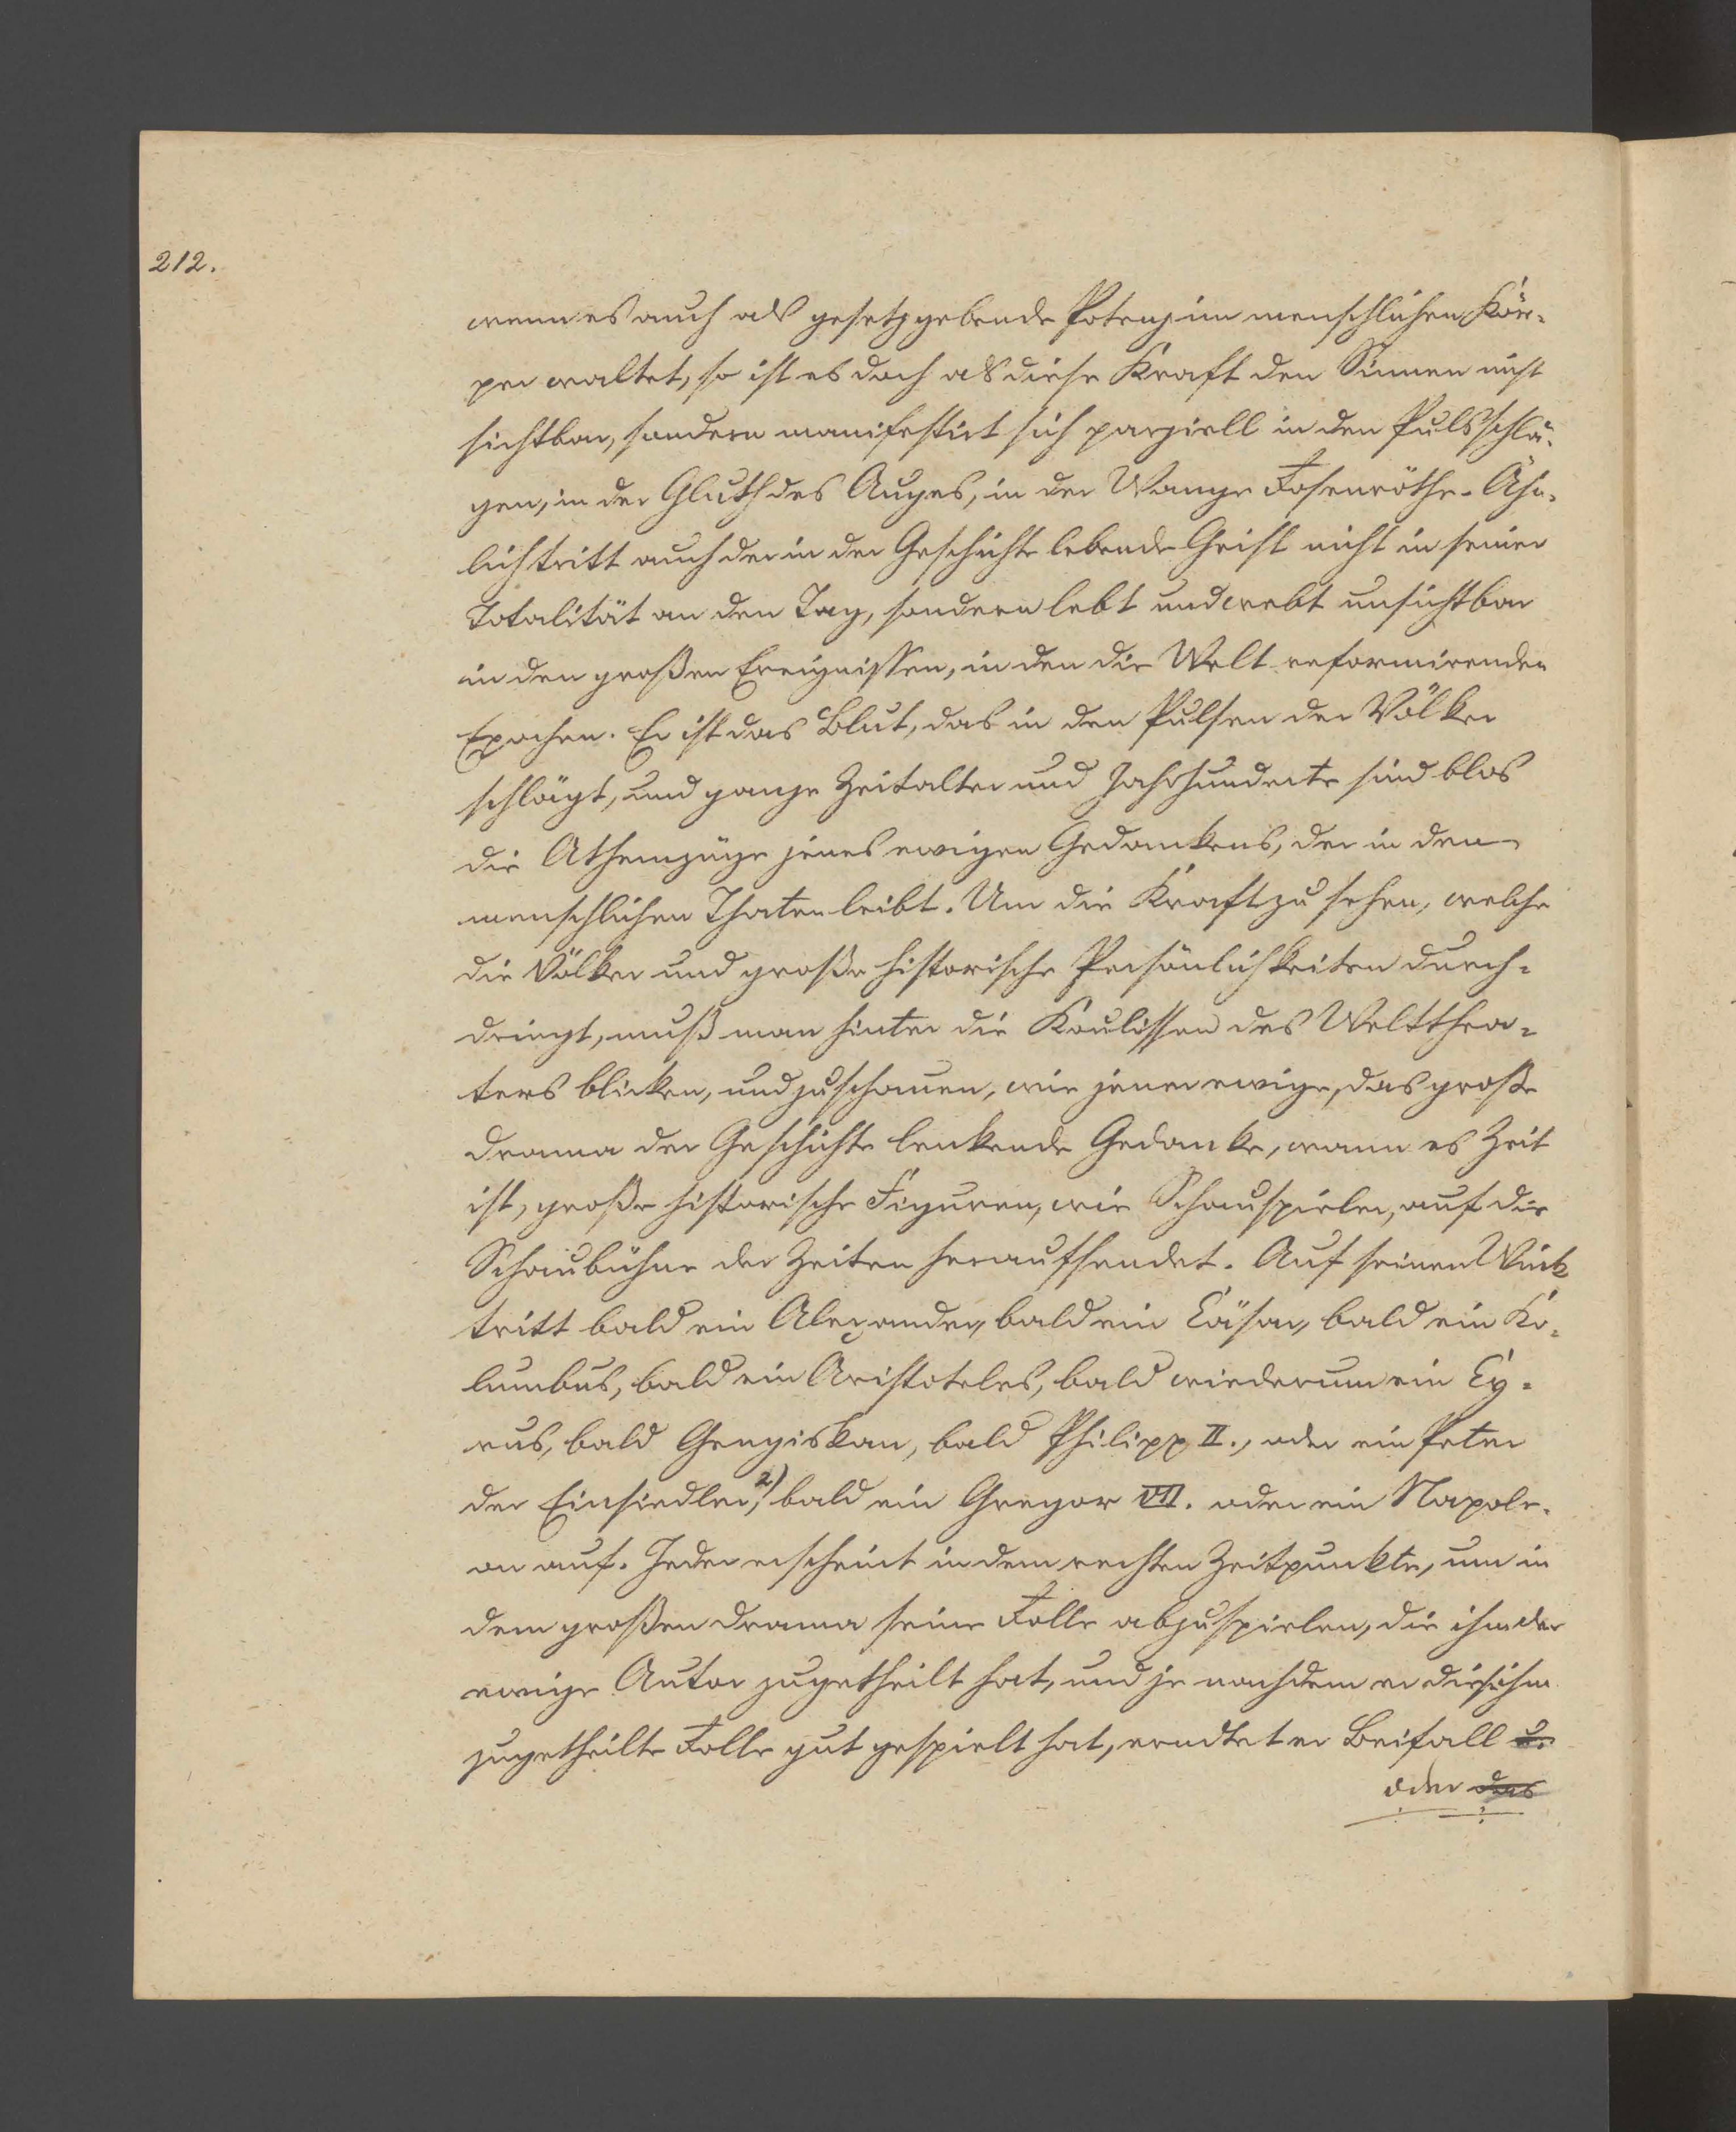 212.
wenn es auch als gesetzgebende Potenz im menschlichen Kör-
per waltet, so ist es doch als diese Kraft den Sinnen nicht
sichtbar, sondern manifestirt sich parziell in den Pulsschlä-
gen, in der Gluth des Auges, in der Wange Rosenröthe. Ähn-
lich tritt auch der in der Geschichte lebende Geist nicht in seiner
Totalität an den Tag, sondern lebt und webt unsichtbar
in den großen Ereignissen, in den die Welt reformirenden
Epochen. Er ist das Blut, das in den Pulsen der Völker
schlägt, und ganze Zeitalter und Jahrhunderte sind blos
die Athemzüge jenes ewigen Gedankens, der in den
menschlichen Thaten leibt. Um die Kraft zu sehen, welche
die Völker und große historische Persönlichkeiten durch-
dringt, muß man hinter die Koulissen des Weltthea-
ters blicken, und zuschauen, wie jener ewige, das große
Drama der Geschichte lenkende Gedanke, wann es Zeit
ist, große historische Figuren, wie Schauspieler, auf die
Schaubühne der Zeiten heraufsendet. Auf seinen Wink
tritt bald ein Alexander, bald ein Cäsar, bald ein Ko-
lumbus, bald ein Aristoteles, bald wiederum ein Cy-
rus, bald Gengiskan, bald Philipp II., oder ein Peter
der Einsiedler,2) bald ein Gregor VII. oder ein Napole-
on auf. Jeder erscheint in dem rechten Zeitpunkte, um in
dem großen Drama seine Rolle abzuspielen, die ihm der
ewige Autor zugetheilt hat, und je nachdem er die ihm
zugetheilte Rolle gut gespielt hat, erndtet er Beifall u.
oder das